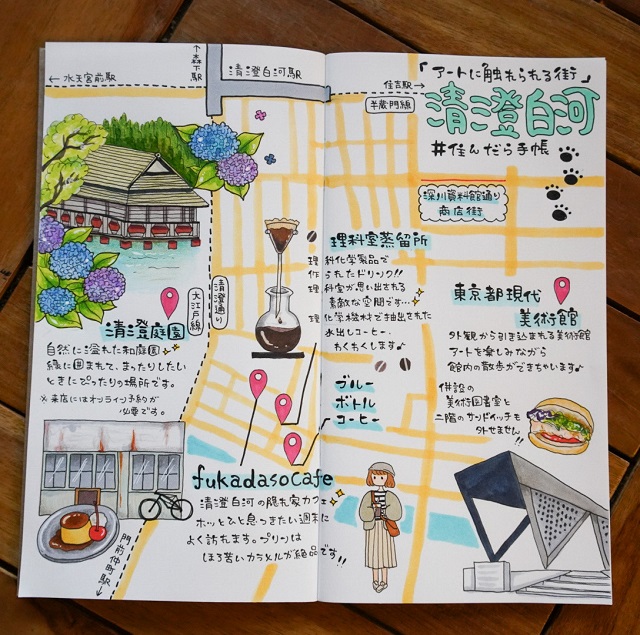 ← 水天宮前駅
↑森下駅
清澄白河駅
住吉駅 →
半蔵門線
「アートに触れられる街」
清澄白河
#住んだら手帳
深川資料館通り
商店街
大江戸線
清澄通り
清澄庭園
自然に溢れた和庭園
緑に囲まれて、まったりしたい
ときにぴったりの場所です。
※来店にはオンライン予約が
必要です。
理科室蒸留所
理科化学製品で
作られたドリンク!!
理科室が思い出される
素敵な空間です…
理化学機材で抽出された
水出しコーヒー。
わくわくします♪
ブルー
ボトル
コーヒー
東京都現代
美術館
外観から引き込まれる美術館
アートを楽しみながら
館内の散歩ができちゃいます♪
併設の
美術図書室と
二階のサンドイッチも
外せません!!
fukadasocafe
清澄白河の隠れ家カフェ
ホッとひと息つきたい週末に
よく訪れます。プリンは
ほろ苦いカラメルが絶品です!!
門前仲町駅 ↓